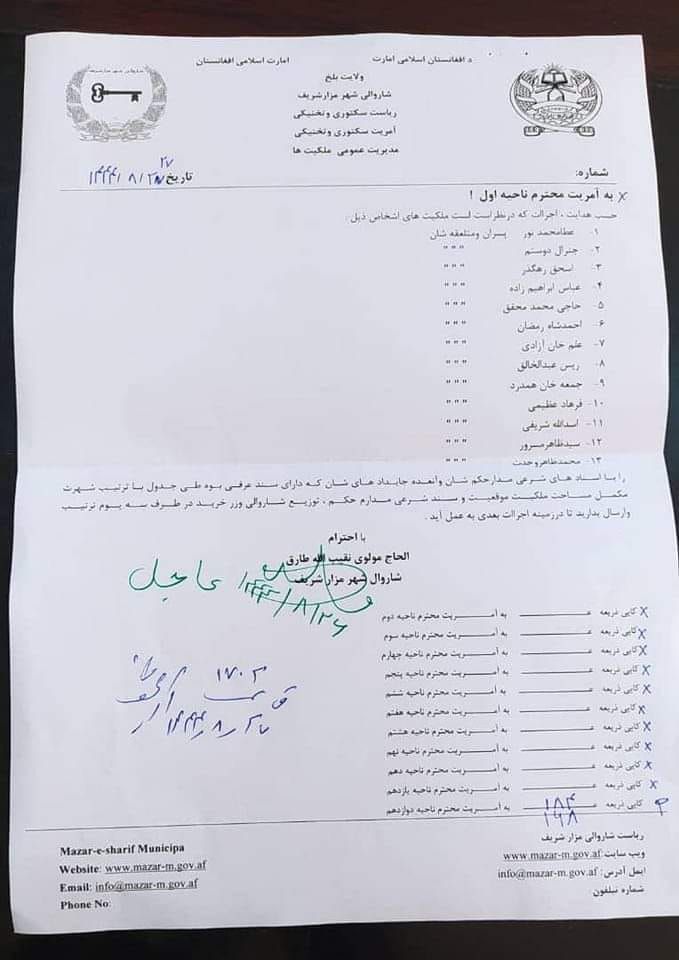 د افغانستان اسلامی امارت
امارت اسلامی افغانستان
شاروالی شهر مزارشریف
ولایت بلخ
شاروالی شهر مزارشریف
ریاست سکتوری وتخنیکی
آمریت سکتوری وتخنیکی
مدیریت عمومی ملکیت ها
شماره:
تاریخ ۱۴۴۴/۸/۲۷
به آمریت محترم ناحیه اول !
حسب هدایت ، اجراات که درنظراست لست ملکیت های اشخاص ذیل :
۱- عطامحمد نور پسران ومتعلقه شان
۲- جنرال دوستم " " "
۳- اسحق رهگذر " " "
۴- عباس ابراهیم زاده " " "
۵- حاجی محمد محقق " " "
۶- احمدشاه رمضان " " "
۷- علم خان آزادی " " "
۸- ریس عبدالخالق " " "
۹- جمعه خان همدرد " " "
۱۰- فرهاد عظیمی " " "
۱۱- اسدالله شریفی " " "
۱۲- سیدظاهرمسرور " " "
۱۳- محمدظاهروحدت " " "
را با اسناد های شرعی مدارحکم شان وآنعده جایداد های شان که دارای سند عرفی بوه طی جدول با ترتیب شهرت
مکمل مساحت ملکیت موقعیت و سند شرعی مدارم حکم ، توزیع شاروالی وزر خرید در ظرف سه یوم ترتیب
وارسال بدارید تا درزمینه اجراات بعدی به عمل آید .
با احترام
الحاج مولوی نقیب الله طارق
شاروال شهر مزار شریف
عاجل ۱۴۴۴/۸/۲۶
۱۷۰۳
۱۴۴۴/۸/۲۷
کاپی ذریعه ـــــ به آمـــریت محترم ناحیه دوم
کاپی ذریعه ـــــ به آمـــریت محترم ناحیه سوم
کاپی ذریعه ـــــ به آمـــریت محترم ناحیه چهارم
کاپی ذریعه ـــــ به آمـــریت محترم ناحیه پنجم
کاپی ذریعه ـــــ به آمـــریت محترم ناحیه ششم
کاپی ذریعه ـــــ به آمـــریت محترم ناحیه هفتم
کاپی ذریعه ـــــ به آمـــریت محترم ناحیه هشتم
کاپی ذریعه ـــــ به آمـــریت محترم ناحیه نهم
کاپی ذریعه ـــــ به آمـــریت محترم ناحیه دهم
کاپی ذریعه ـــــ به آمـــریت محترم ناحیه یازدهم
کاپی ذریعه ۱۸۴ به آمـــریت محترم ناحیه دوازدهم
۱۹۸
ریاست شاروالی مزار شریف
ویب سایت: www.mazar-m.gov.af
ایمل آدرس: info@mazar-m.gov.af
شماره تیلفون
Mazar-e-sharif Municipa
Website: www.mazar-m.gov.af
Email: info@mazar-m.gov.af
Phone No: